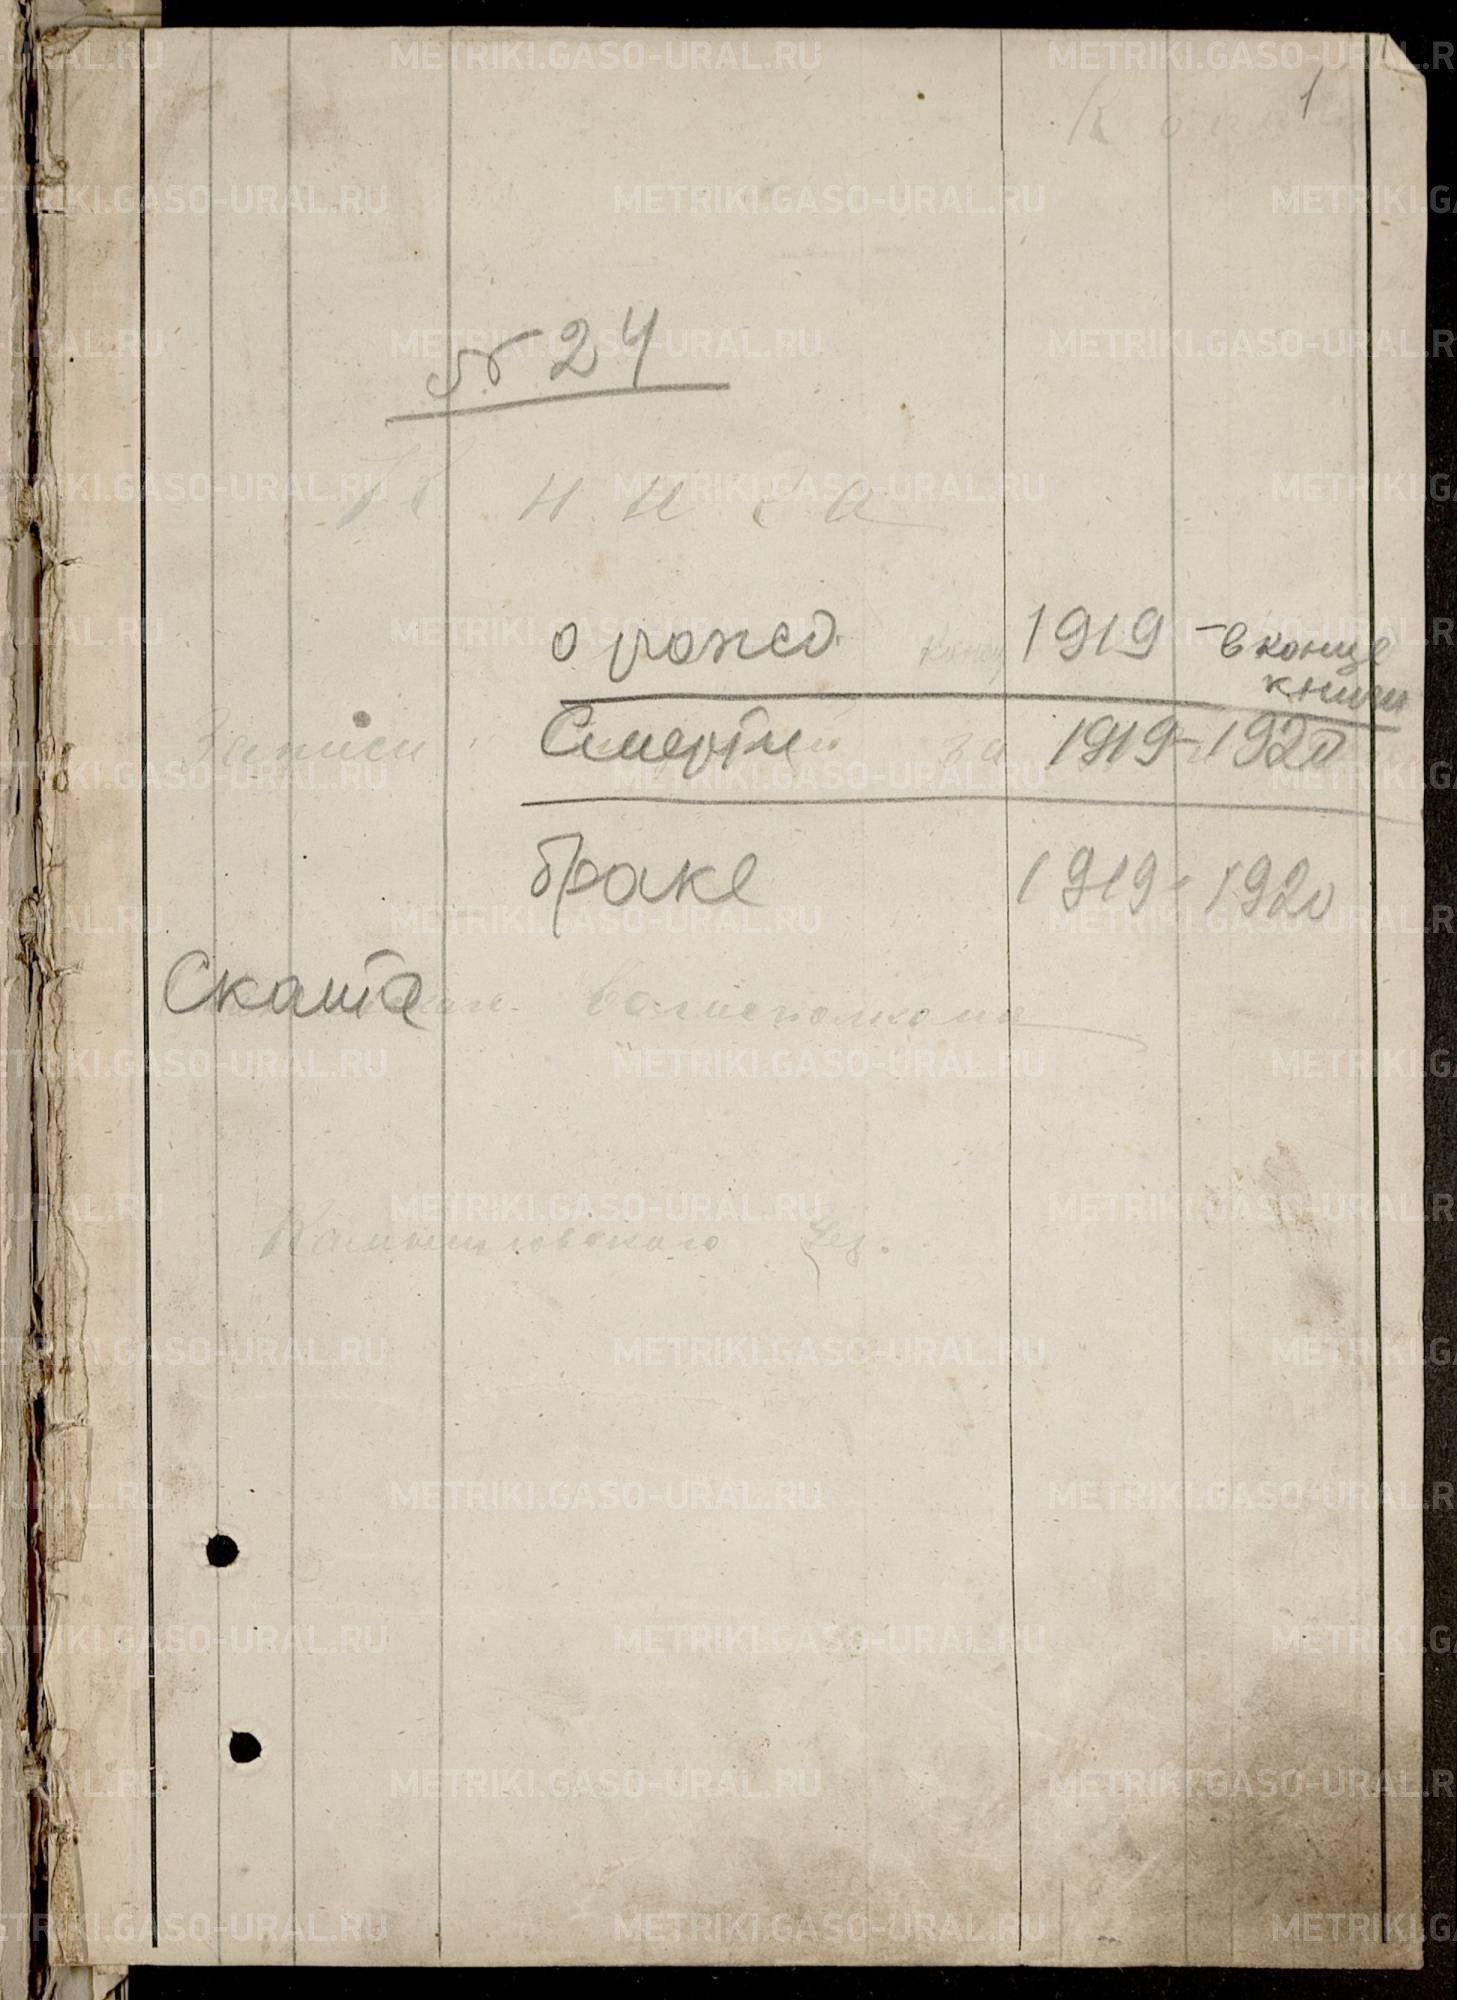 1
Копия
№ 24
Книга
о рожд. 1919 - в конце
книги
Записи Смерти за 1919-1920
браке 1919-1920
Скатa Волисполкома
Камышловского Уез.
METRIKI.GASO-URAL.RU